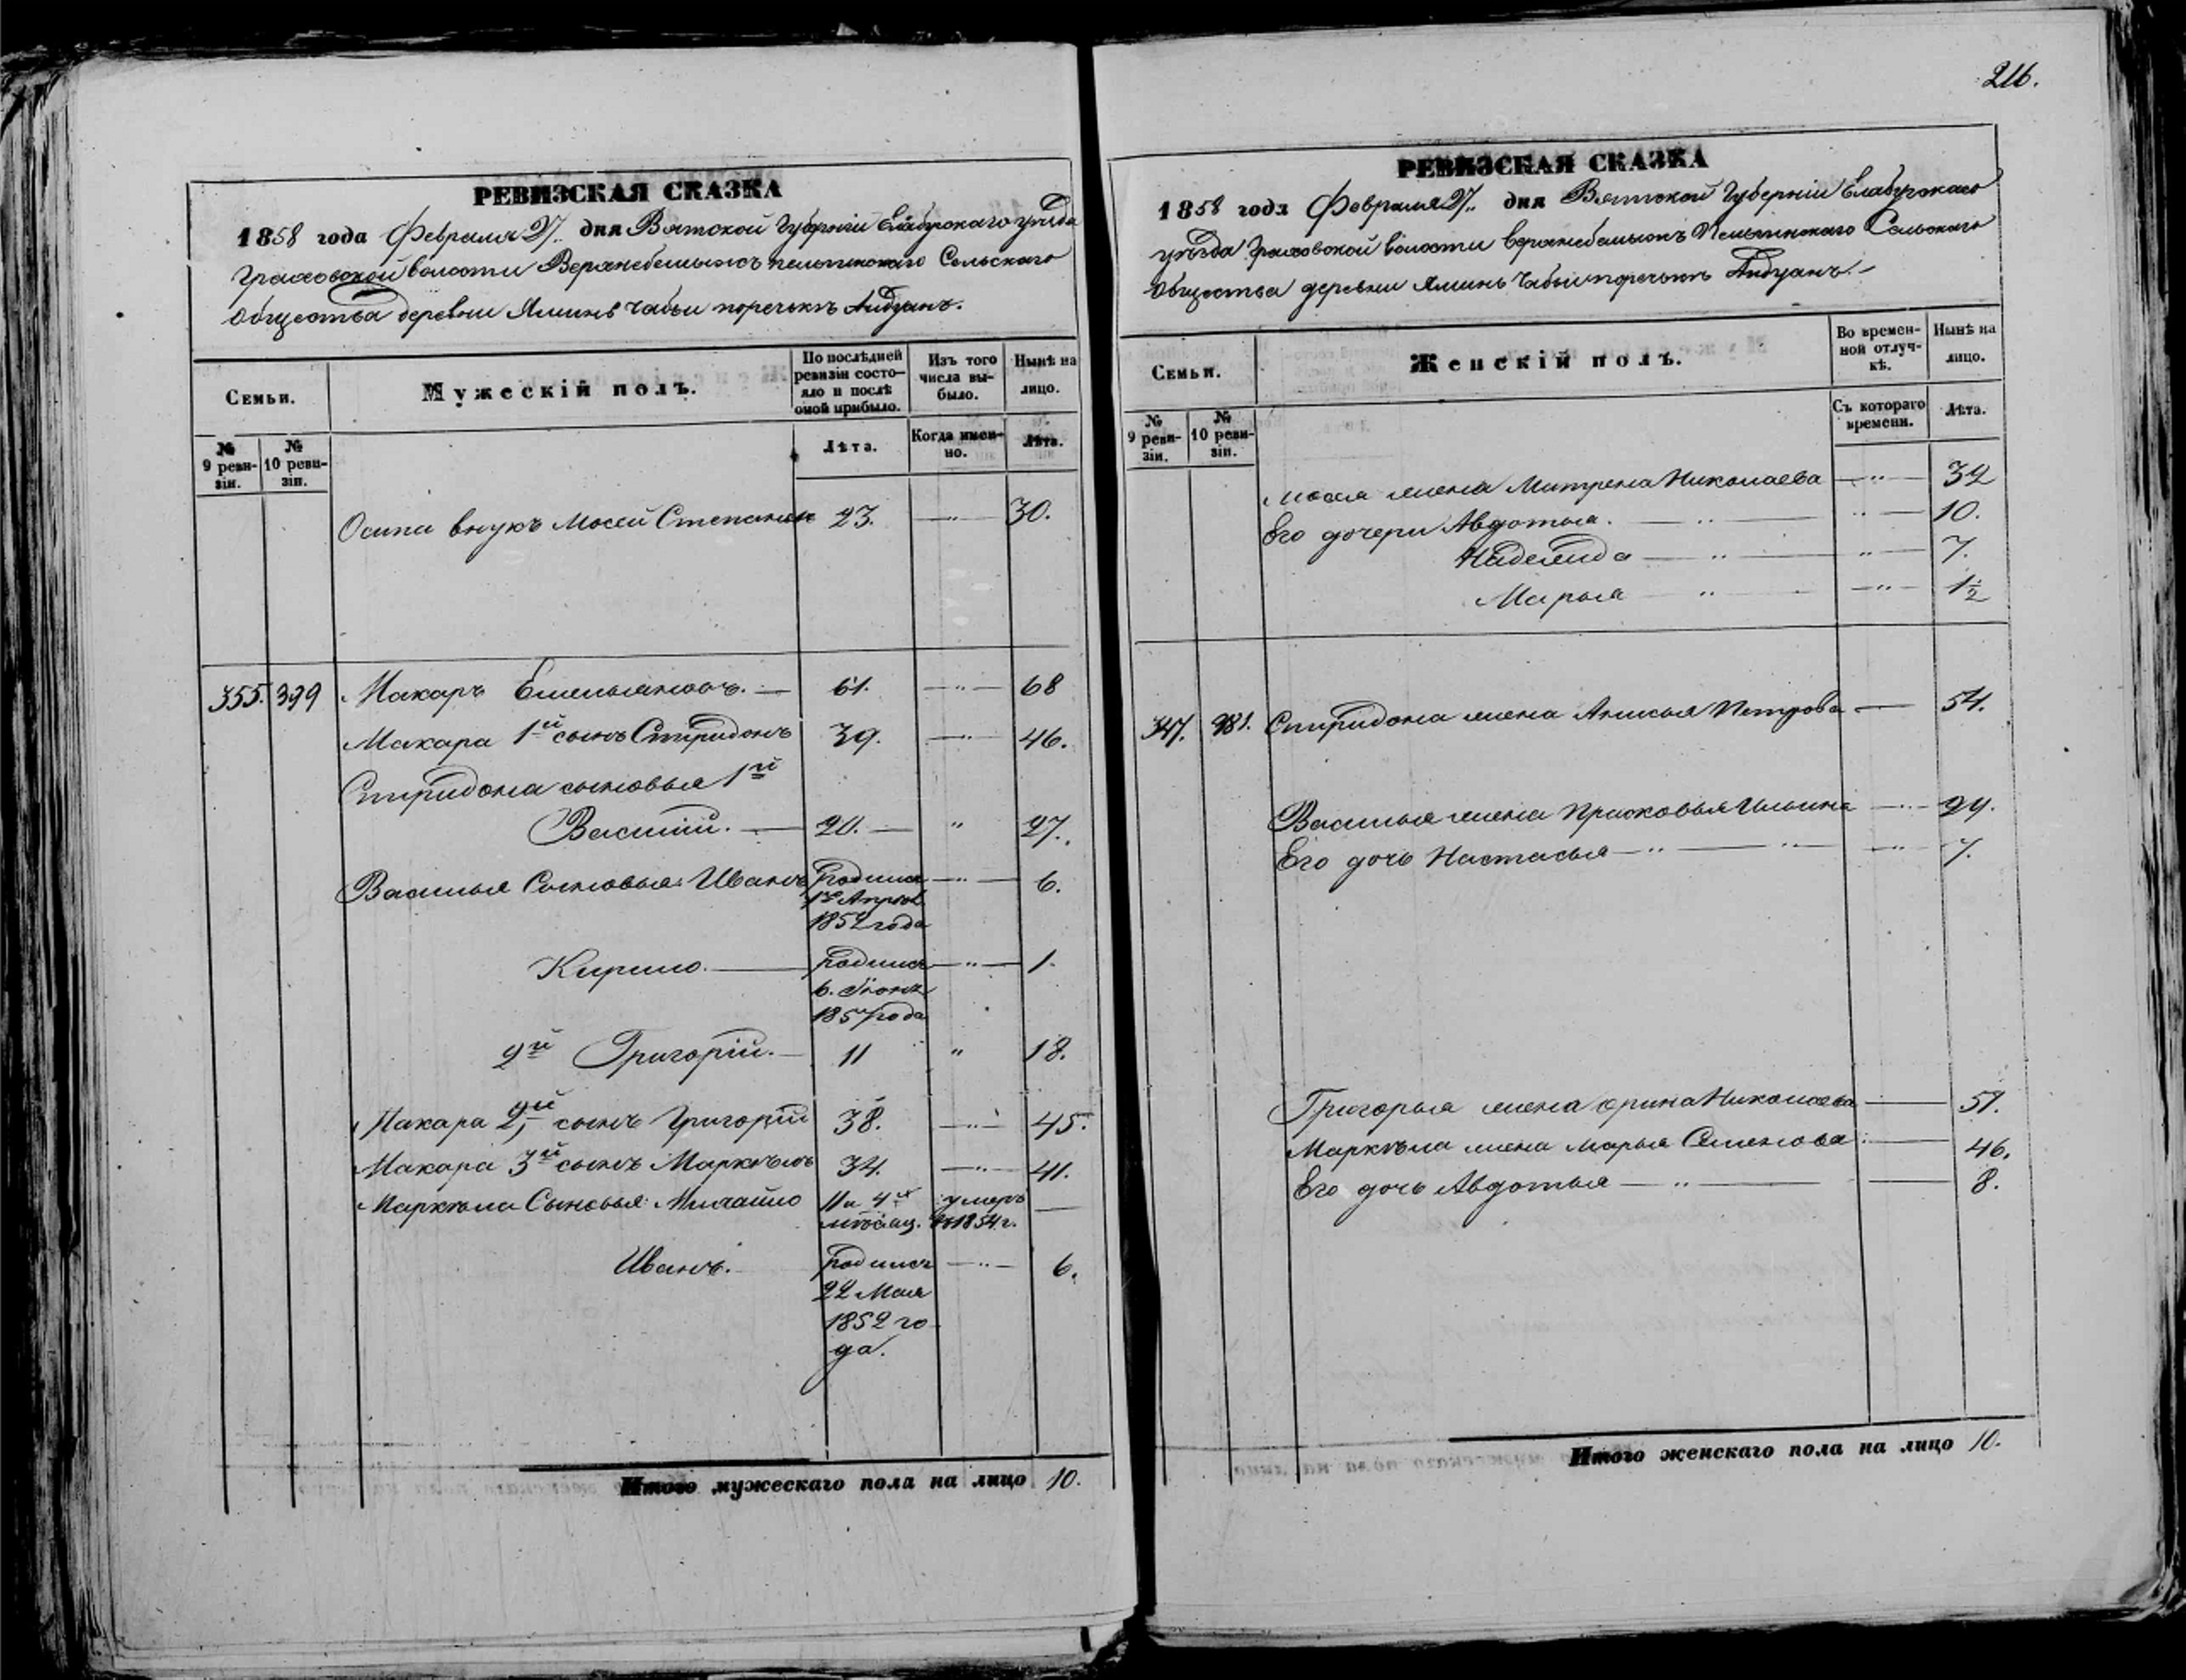 216.
РЕВИЗСКАЯ СКАЗКА
1858 года Февраля 27. дня Вятской Губерніи Елабугскаго уѣзда
Граховской волости Верхнебемыжъ Пельгинскаго Сельскаго
Общества деревни Яминъ Чабьи поречькъ Айдуанъ.
Семьи.
Мужескій полъ.
По послѣдней ревизіи состояло и послѣ оной прибыло.
Изъ того числа выбыло.
Нынѣ на лицо.
№ 9 ревизіи.
№ 10 ревизіи.
Лѣта.
Когда именно.
Лѣта.
Осипа внукъ Мосей Степановъ 23. —"— 30.
355. 399 Макаръ Емельяновъ. — 61. —"— 68
Макара 1й сынъ Спиридонъ 39. —"— 46.
Спиридона сыновья 1й
Василій. — 20. — " 27.
Василья Сыновья: Иванъ родился —"— 6.
Апрѣл
1852 года
Кирило. — родился —"— 1.
6. Іюня
1857 года
2й Григорій. — 11 " 18.
Макара 2й сынъ Григорій 38. —"— 45.
Макара 3й сынъ Маркѣлъ 34. —"— 41.
Маркѣла Сыновья: Михайло 11 и 4х умеръ —
мѣсяц. въ 1854 г.
Иванъ. родился —"— 6.
22 Мая
1852 го-
да.
Итого мужескаго пола на лицо 10.
РЕВИЗСКАЯ СКАЗКА
1858 года Февраля 27. дня Вятской Губерніи Елабугскаго
уѣзда Граховской волости Верхнебемыжъ Пельгинскаго Сельскаго
Общества деревни Яминъ Чабьи поречькъ Айдуанъ. —
Семьи.
Женскій полъ.
Во временной отлучкѣ.
Нынѣ на лицо.
№ 9 ревизіи.
№ 10 ревизіи.
Съ котораго времени.
Лѣта.
Мосея жена Митрена Николаева —"— 32
Его дочери Авдотья. —"— "— 10.
Надежида —"— "— 7.
Марья " —"— 1½
347. 981. Спиридона жена Анисья Петрова — 54.
Василья жена Прасковья Ильина —"— 29.
Его дочь Настасья —"— "— —"— 7.
Григорья жена Орина Николаева — 51.
Маркѣла жена Марья Семенова. — 46.
Его дочь Авдотья —"— — 8.
Итого женскаго пола на лицо 10.